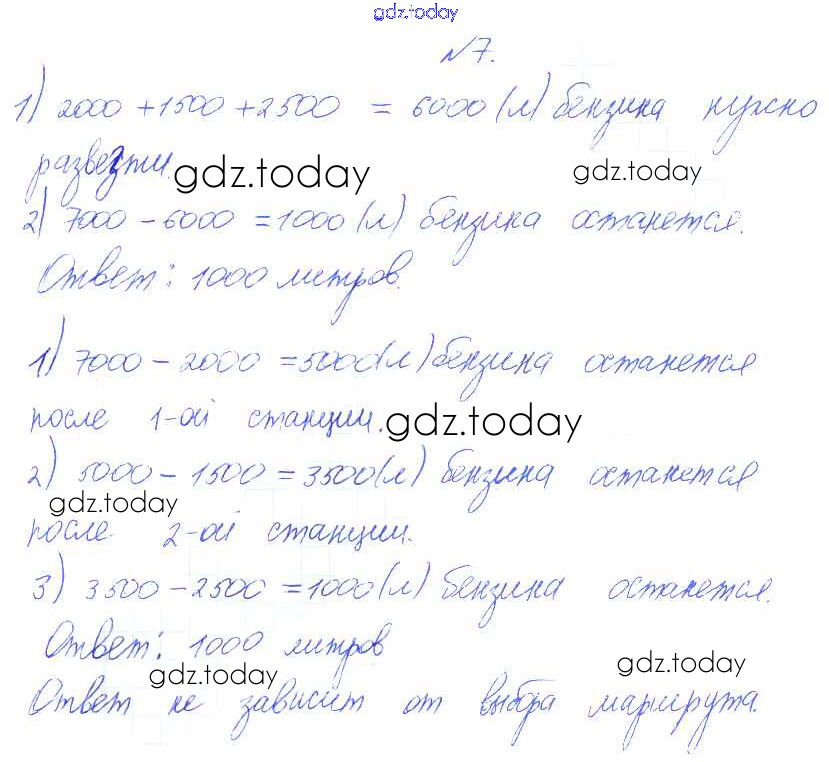 gdz.today
№7.
1) 2000 + 1500 + 2500 = 6000 (л) бензина нужно
развезти. gdz.today gdz.today
2) 7000 - 6000 = 1000 (л) бензина останется.
Ответ: 1000 литров.
1) 7000 - 2000 = 5000 (л) бензина останется
после 1-ой станции. gdz.today
2) 5000 - 1500 = 3500 (л) бензина останется
gdz.today
после 2-ой станции.
3) 3500 - 2500 = 1000 (л) бензина останется.
Ответ: 1000 литров
gdz.today gdz.today
Ответ не зависит от выбора маршрута.